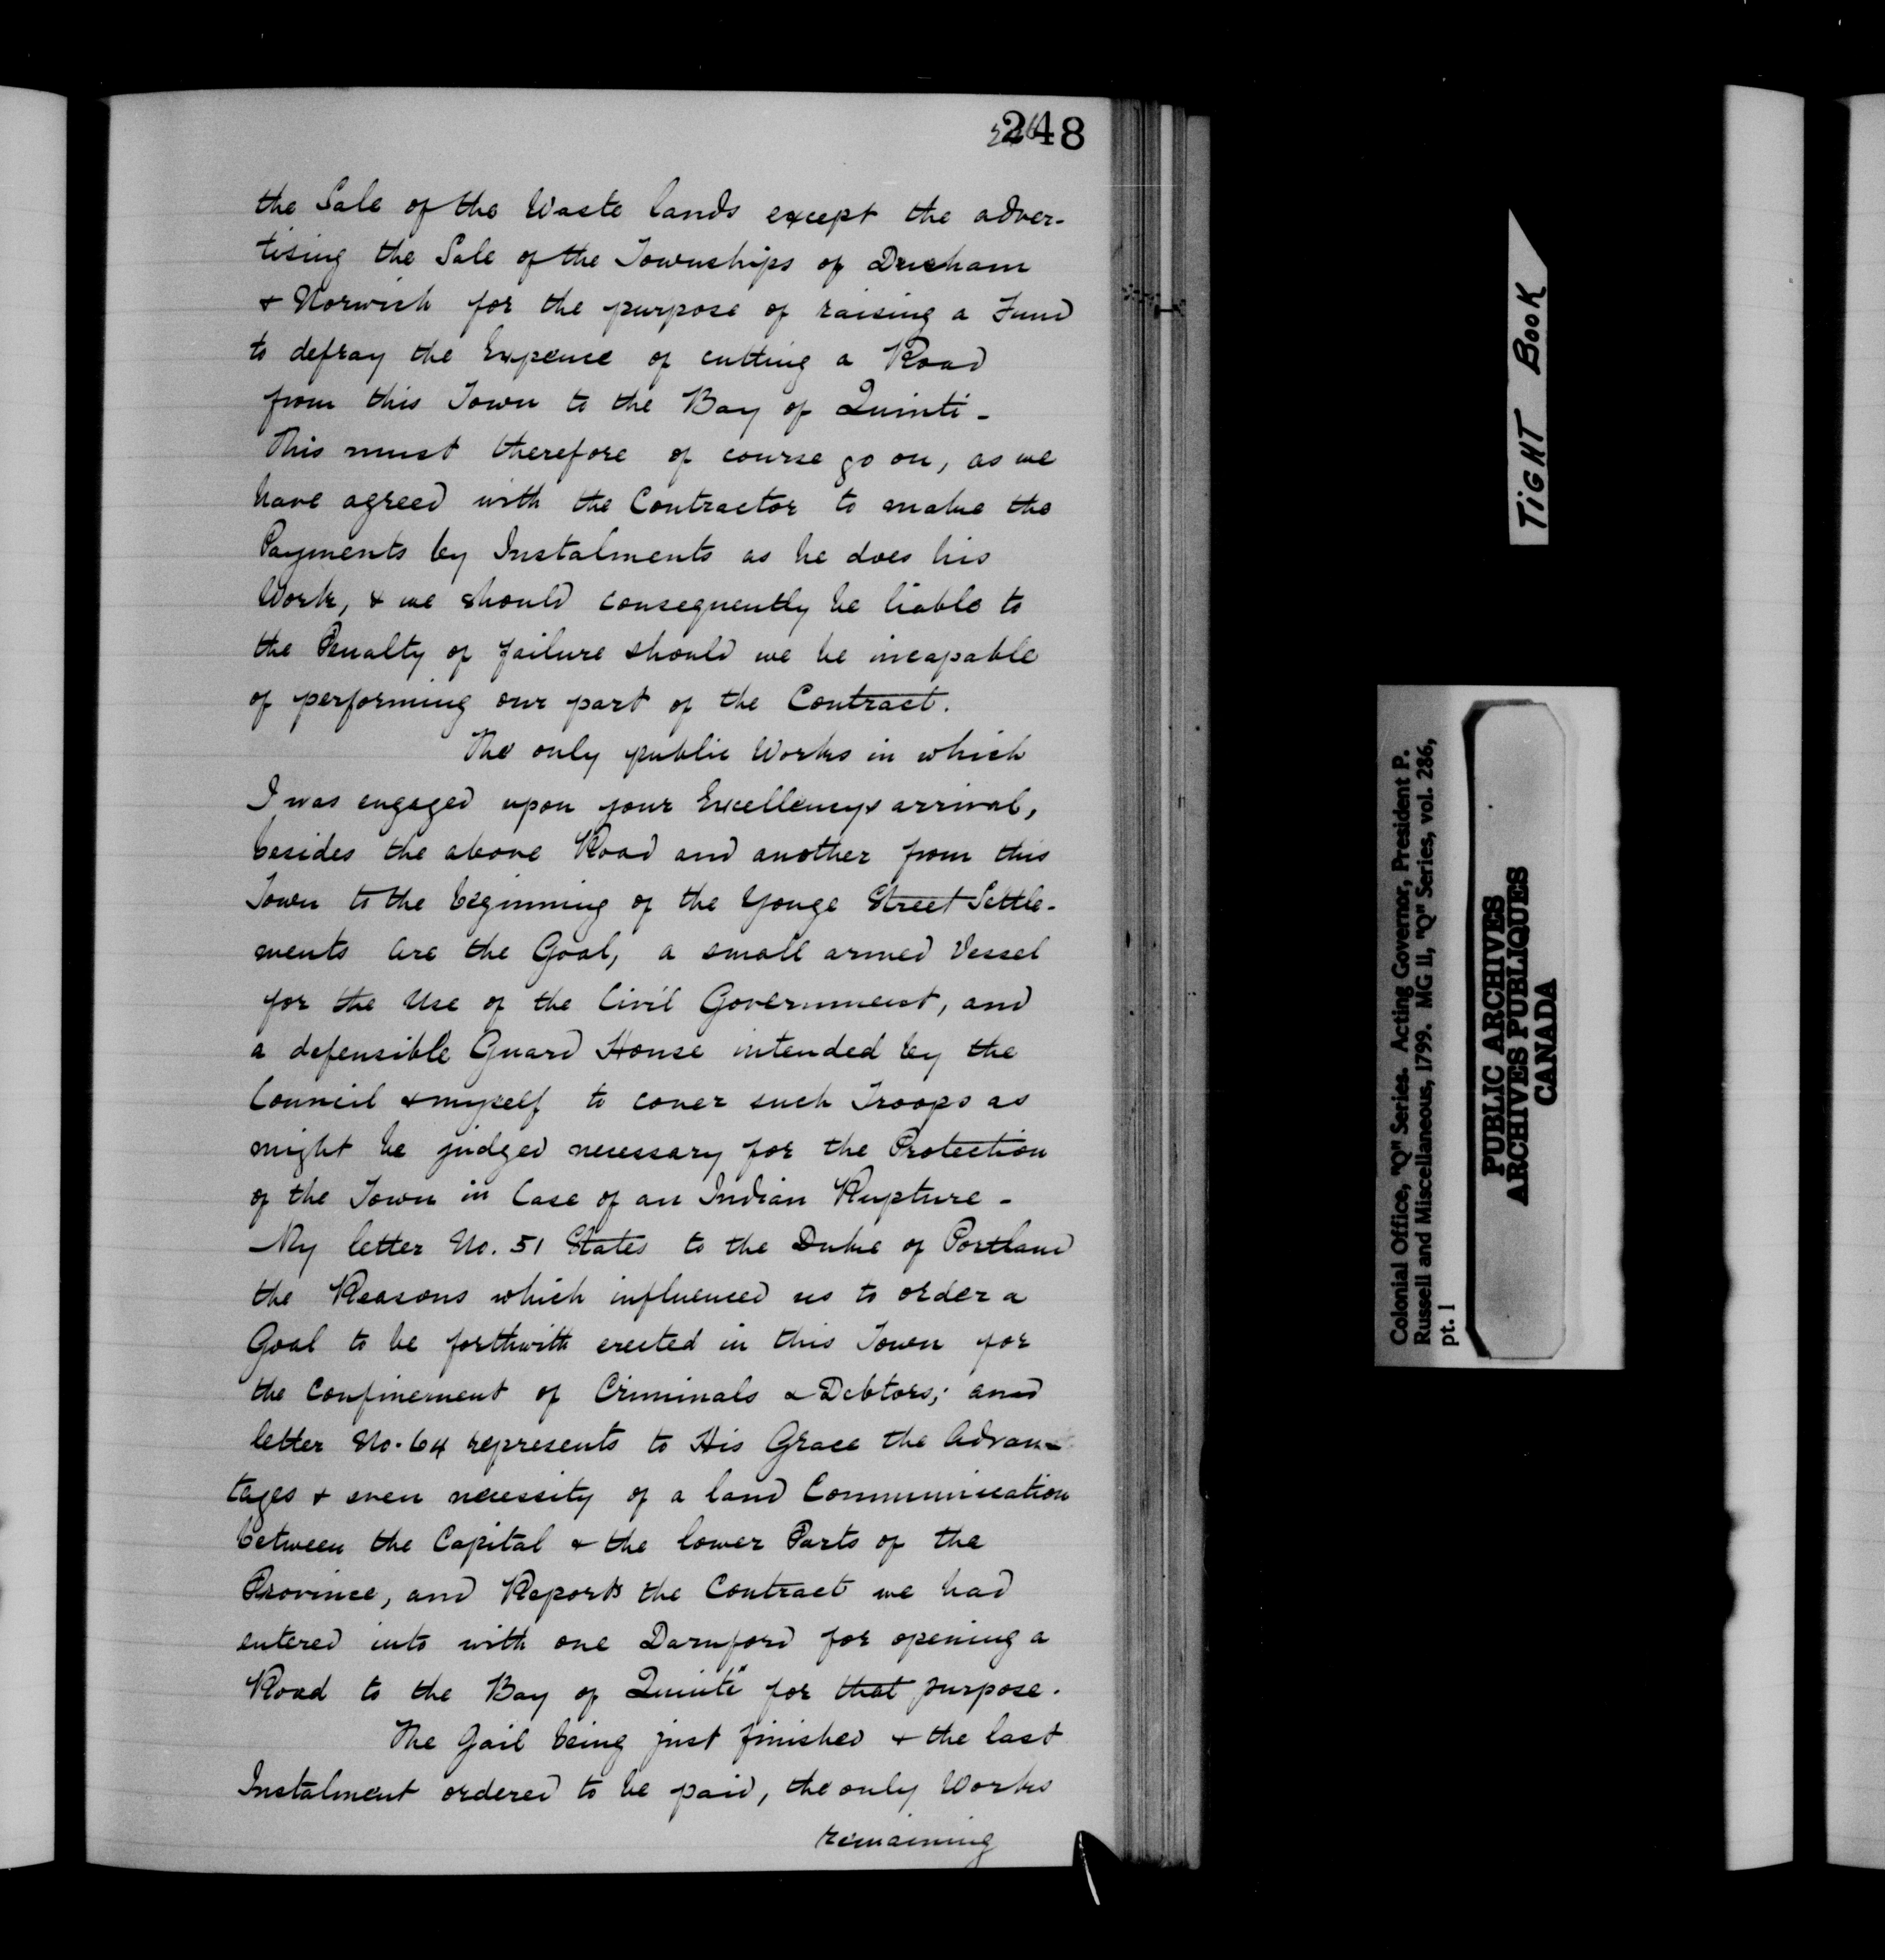 248
the Sale of the Waste lands except the adver-
tising the Sale of the Townships of Dereham
& Norwich for the purpose of raising a Fund
to defray the Expence of cutting a Road
from this Town to the Bay of Quinti -
This must therefore of course go on, as we
have agreed with the Contractor to make the
Payments by Instalments as he does his
Work, & we should consequently be liable to
the Penalty of failure should we be incapable
of performing our part of the Contract.
The only public Works in which
I was engaged upon your Excellencys arrival,
besides the above Road and another from this
Town to the beginning of the Yonge Street Settle-
ments are the Goal, a small armed Vessel
for the Use of the Civil Government, and
a defensible Guard House intended by the
Council & myself to cover such Troops as
might be judged necessary for the Protection
of the Town in Case of an Indian Rupture -
My letter No. 51 States to the Duke of Portland
the Reasons which influenced us to order a
Goal to be forthwith erected in this Town for
the Confinement of Criminals & Debtors; and
letter No. 64 represents to His Grace the Advan-
tages & even necessity of a land Communication
between the Capital & the lower Parts of the
Province, and Reports the Contract we had
entered into with one Darnford for opening a
Road to the Bay of Quinté for that purpose.
The Gail being just finished & the last
Instalment ordered to be paid, the only Works
remaining
TIGHT BOOK
Colonial Office, "Q" Series. Acting Governor, President P.
Russell and Miscellaneous, 1799. MG 11, "Q" Series, vol. 286,
pt. 1
PUBLIC ARCHIVES
ARCHIVES PUBLIQUES
CANADA